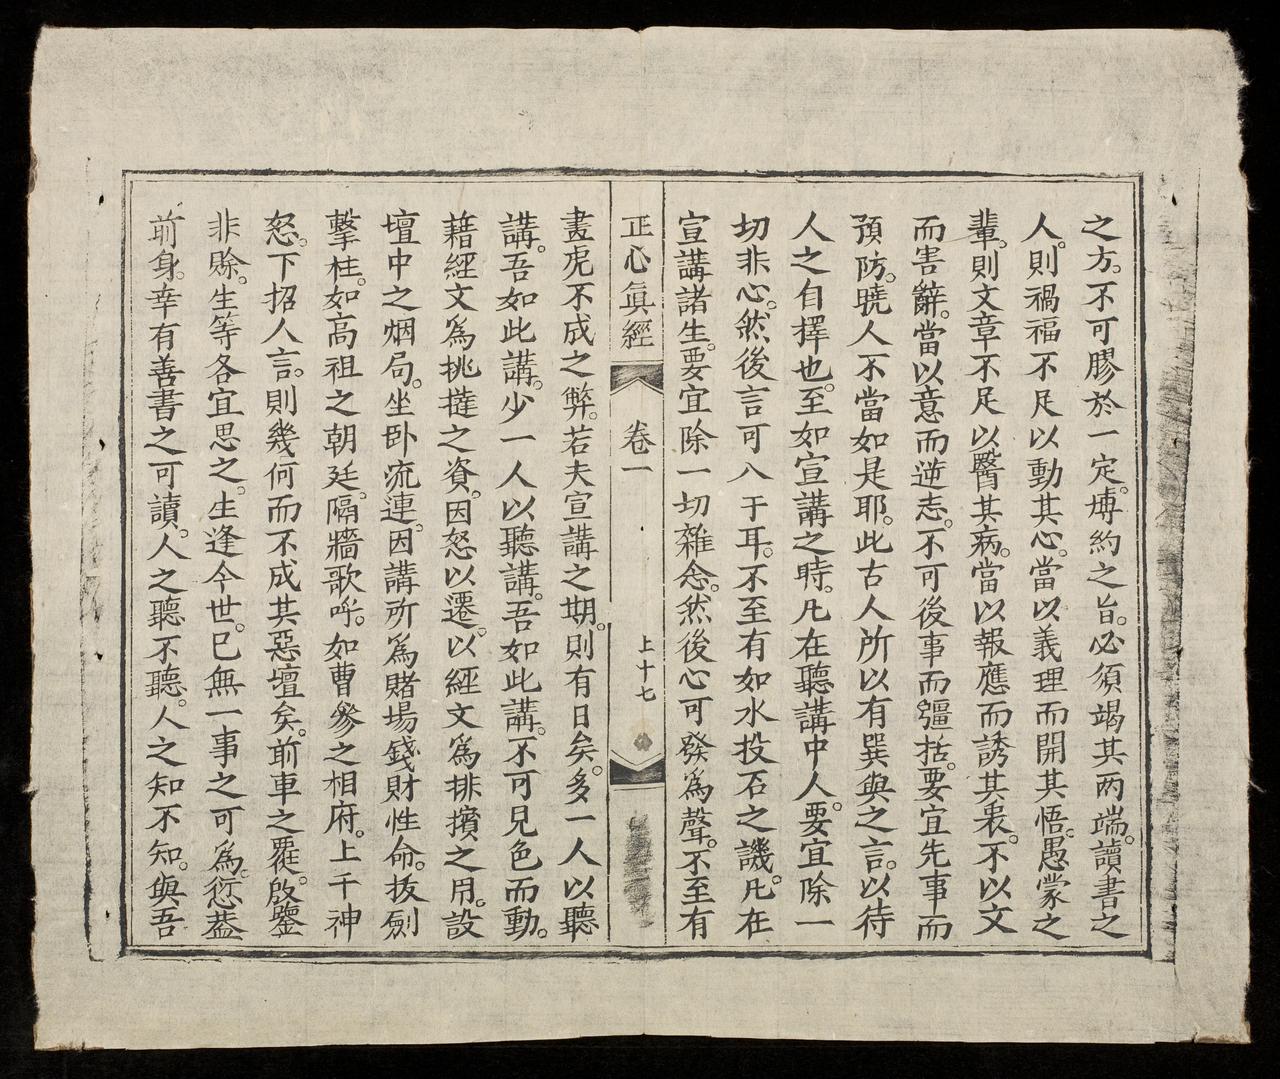 之方。不可膠於一定。博約之旨。必須竭其两端。讀書之
人。則禍福不足以動其心。當以義理而開其悟。愚蒙之
輩。則文章不足以醫其病。當以報應而誘其衷。不以文
而害辭。當以意而逆志。不可後事而彊括。要宜先事而
預防。曉人不當如是耶。此古人所以有巽與之言。以待
人之自擇也。至如宣講之時。凡在聽講中人。要宜除一
切非心。然後言可入于耳。不至有如水投石之譏。凡在
宣講諸生。要宜除一切雜念。然後心可發爲聲。不至有
正心眞經 卷一 上十七
畫虎不成之弊。若夫宣講之期。則有日矣。多一人以聽
講。吾如此講。少一人以聽講。吾如此講。不可見色而動。
藉經文爲挑撻之資。因怒以遷。以經文爲排擯之用。設
壇中之烟局。坐卧流連。因講所爲賭場。錢財性命。拔劍
擊柱。如高祖之朝廷。隔牆歌呼。如曹參之相府。上千神
怒。下招人言。則幾何而不成其惡壇矣。前車之覆。啟鑒
非賒。生等各宜思之。生逢今世。已無一事之可爲。愆葢
前身。幸有善書之可讀。人之聽不聽。人之知不知。與吾